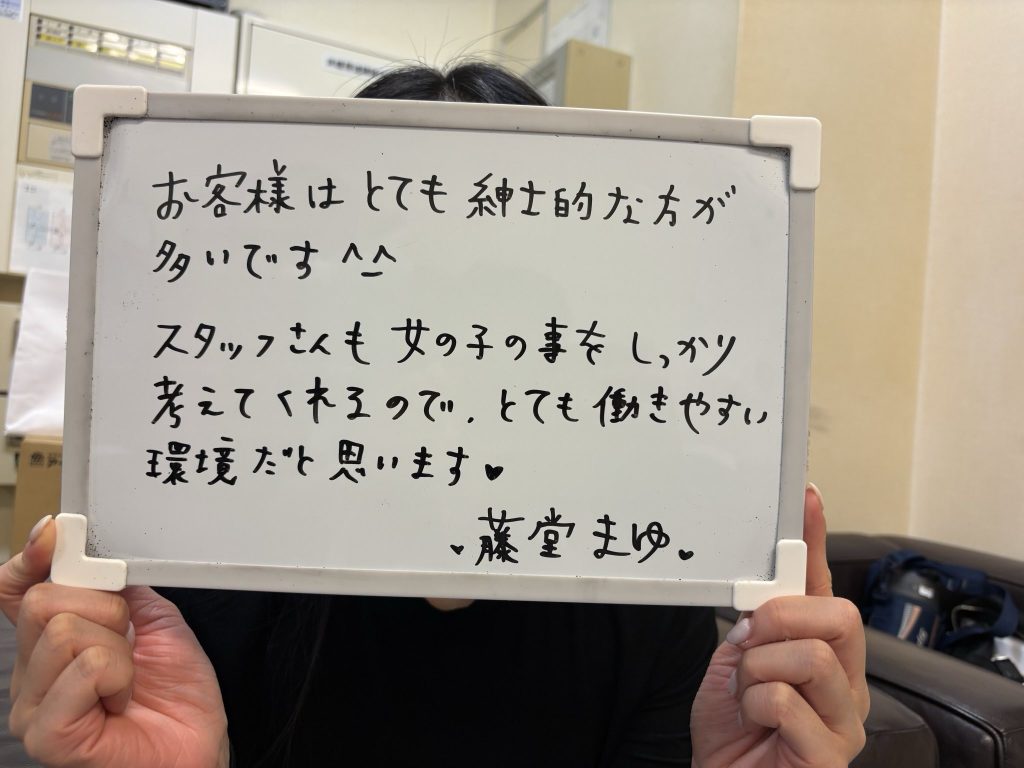 お客様はとても紳士的な方が
多いです ^_^
スタッフさんも女の子の事をしっかり
考えてくれるので、とても働きやすい
環境だと思います♥
♥藤堂まゆ♥